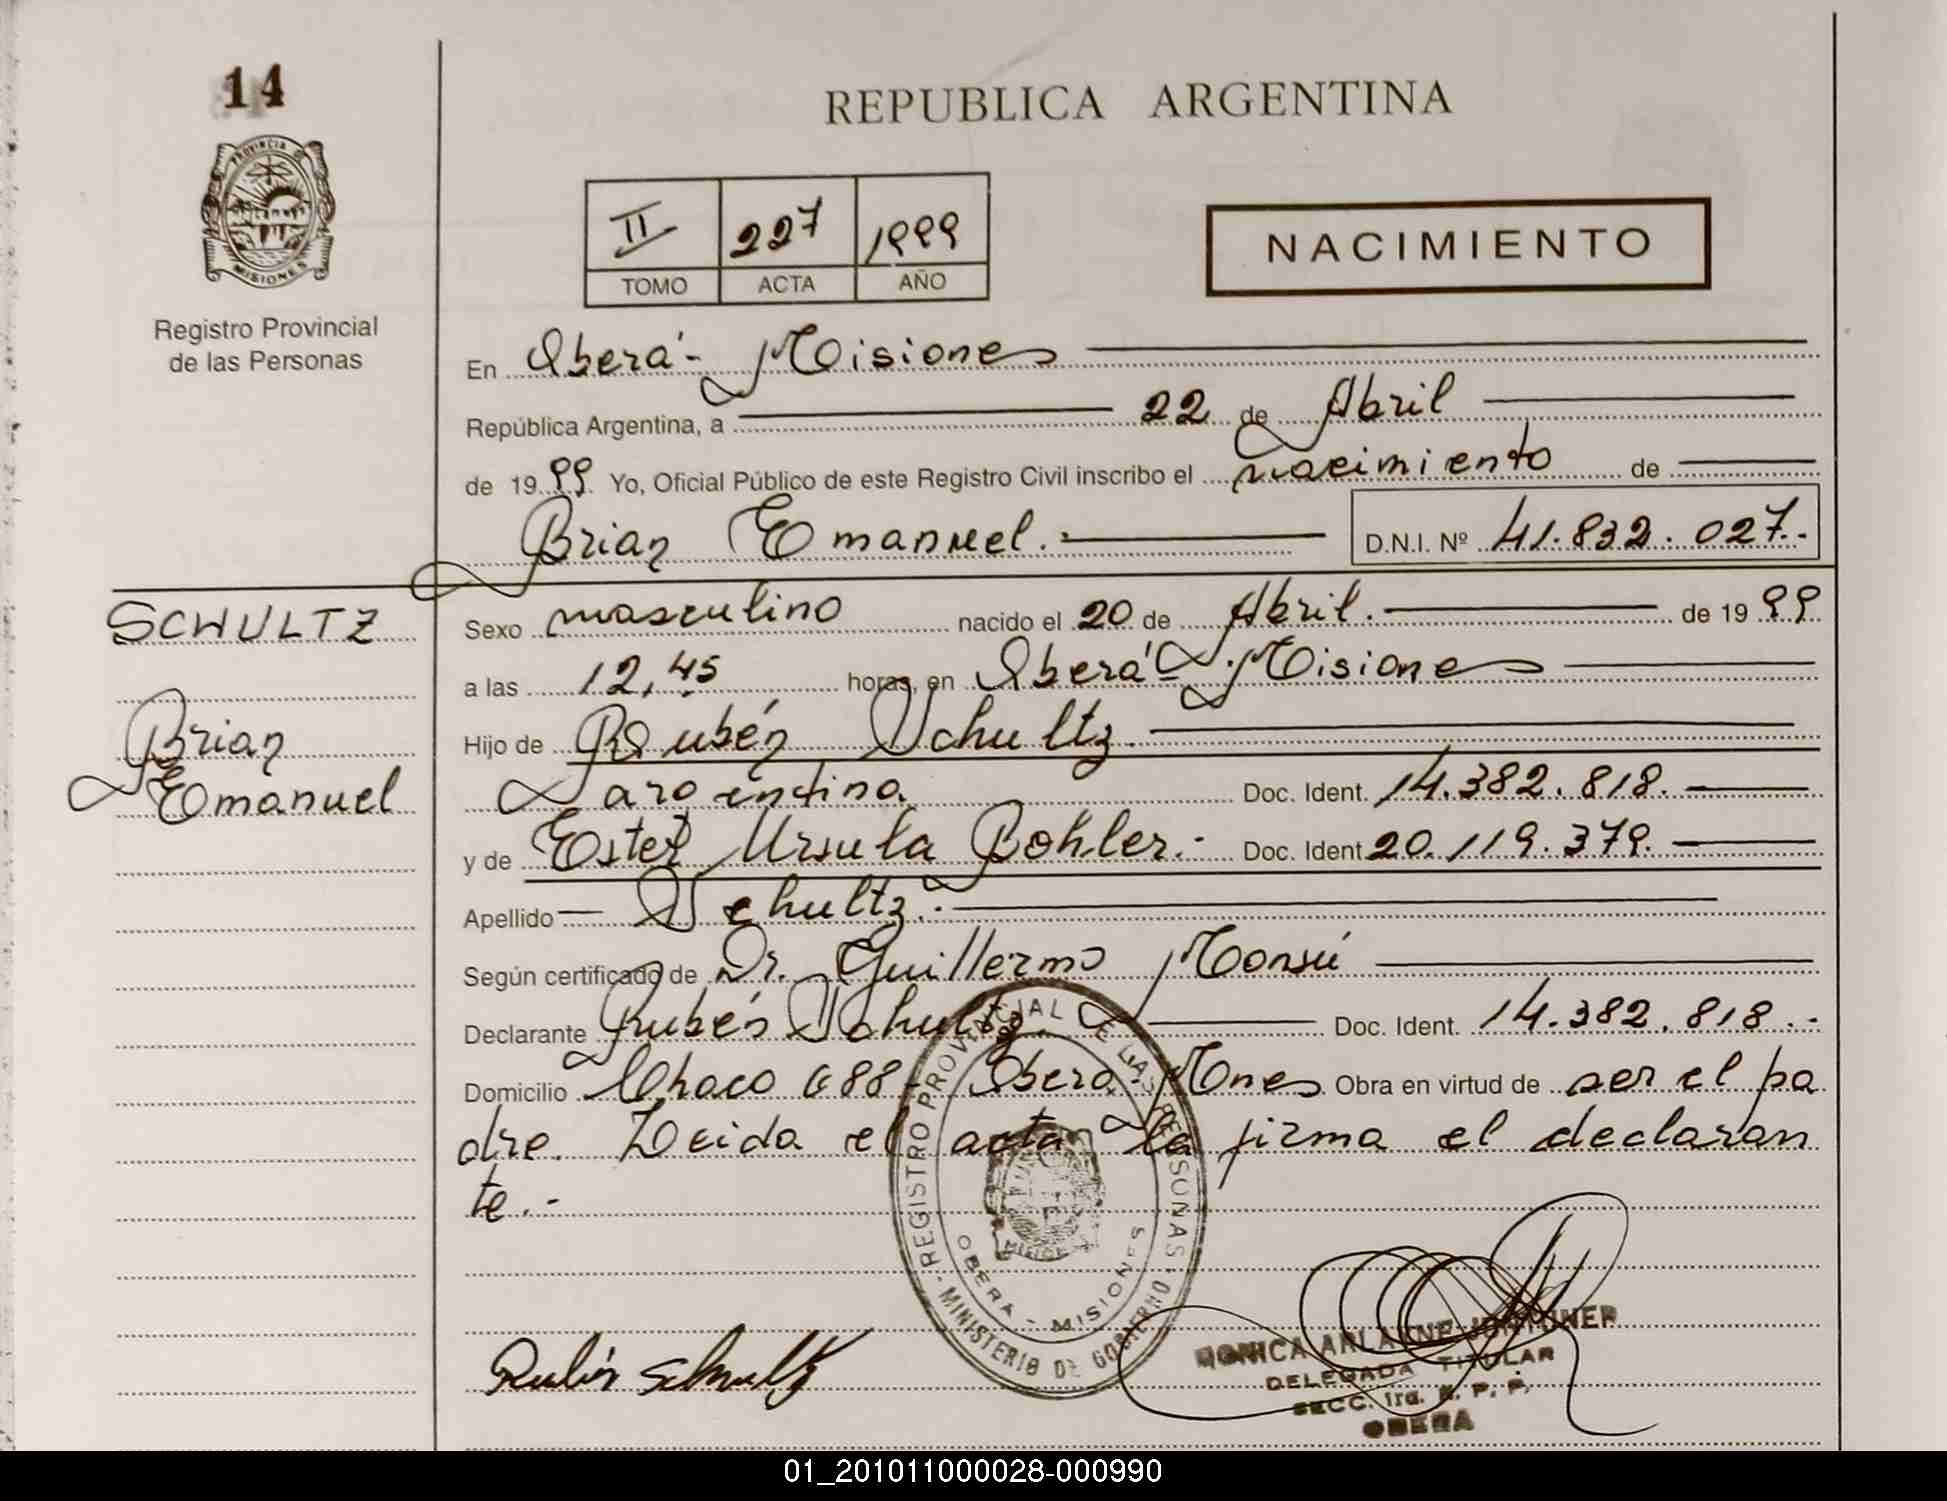 14
REPUBLICA ARGENTINA
PROVINCIA DE
MISIONES
II 227 1999
TOMO ACTA AÑO
NACIMIENTO
Registro Provincial
de las Personas
En Oberá - Misiones
República Argentina, a 22 de Abril
de 1999 Yo, Oficial Público de este Registro Civil inscribo el nacimiento de
Brian Emanuel. D.N.I. Nº 41.832.027.-
SCHULTZ
Brian
Emanuel
Sexo masculino nacido el 20 de Abril. de 1999
a las 12,45 horas, en Oberá - Misiones
Hijo de Rubén Schultz.
argentina Doc. Ident. 14.382.818.
y de Ester Ursula Bohler.- Doc. Ident. 20.119.379.
Apellido Schultz.-
Según certificado de Dr. Guillermo Monsú
Declarante Rubén Schultz Doc. Ident. 14.382.818.-
Domicilio Chaco 688 - Oberá - Mnes Obra en virtud de ser el pa
dre. Leida el acta la firma el declaran
te.-
REGISTRO PROVINCIAL DE LAS PERSONAS
MINISTERIO DE GOBIERNO
OBERA - MISIONES
Rubén Schultz
MONICA
DELEGADA TITULAR
SECC. 1ra. R. P. P.
OBERA
01_201011000028-000990